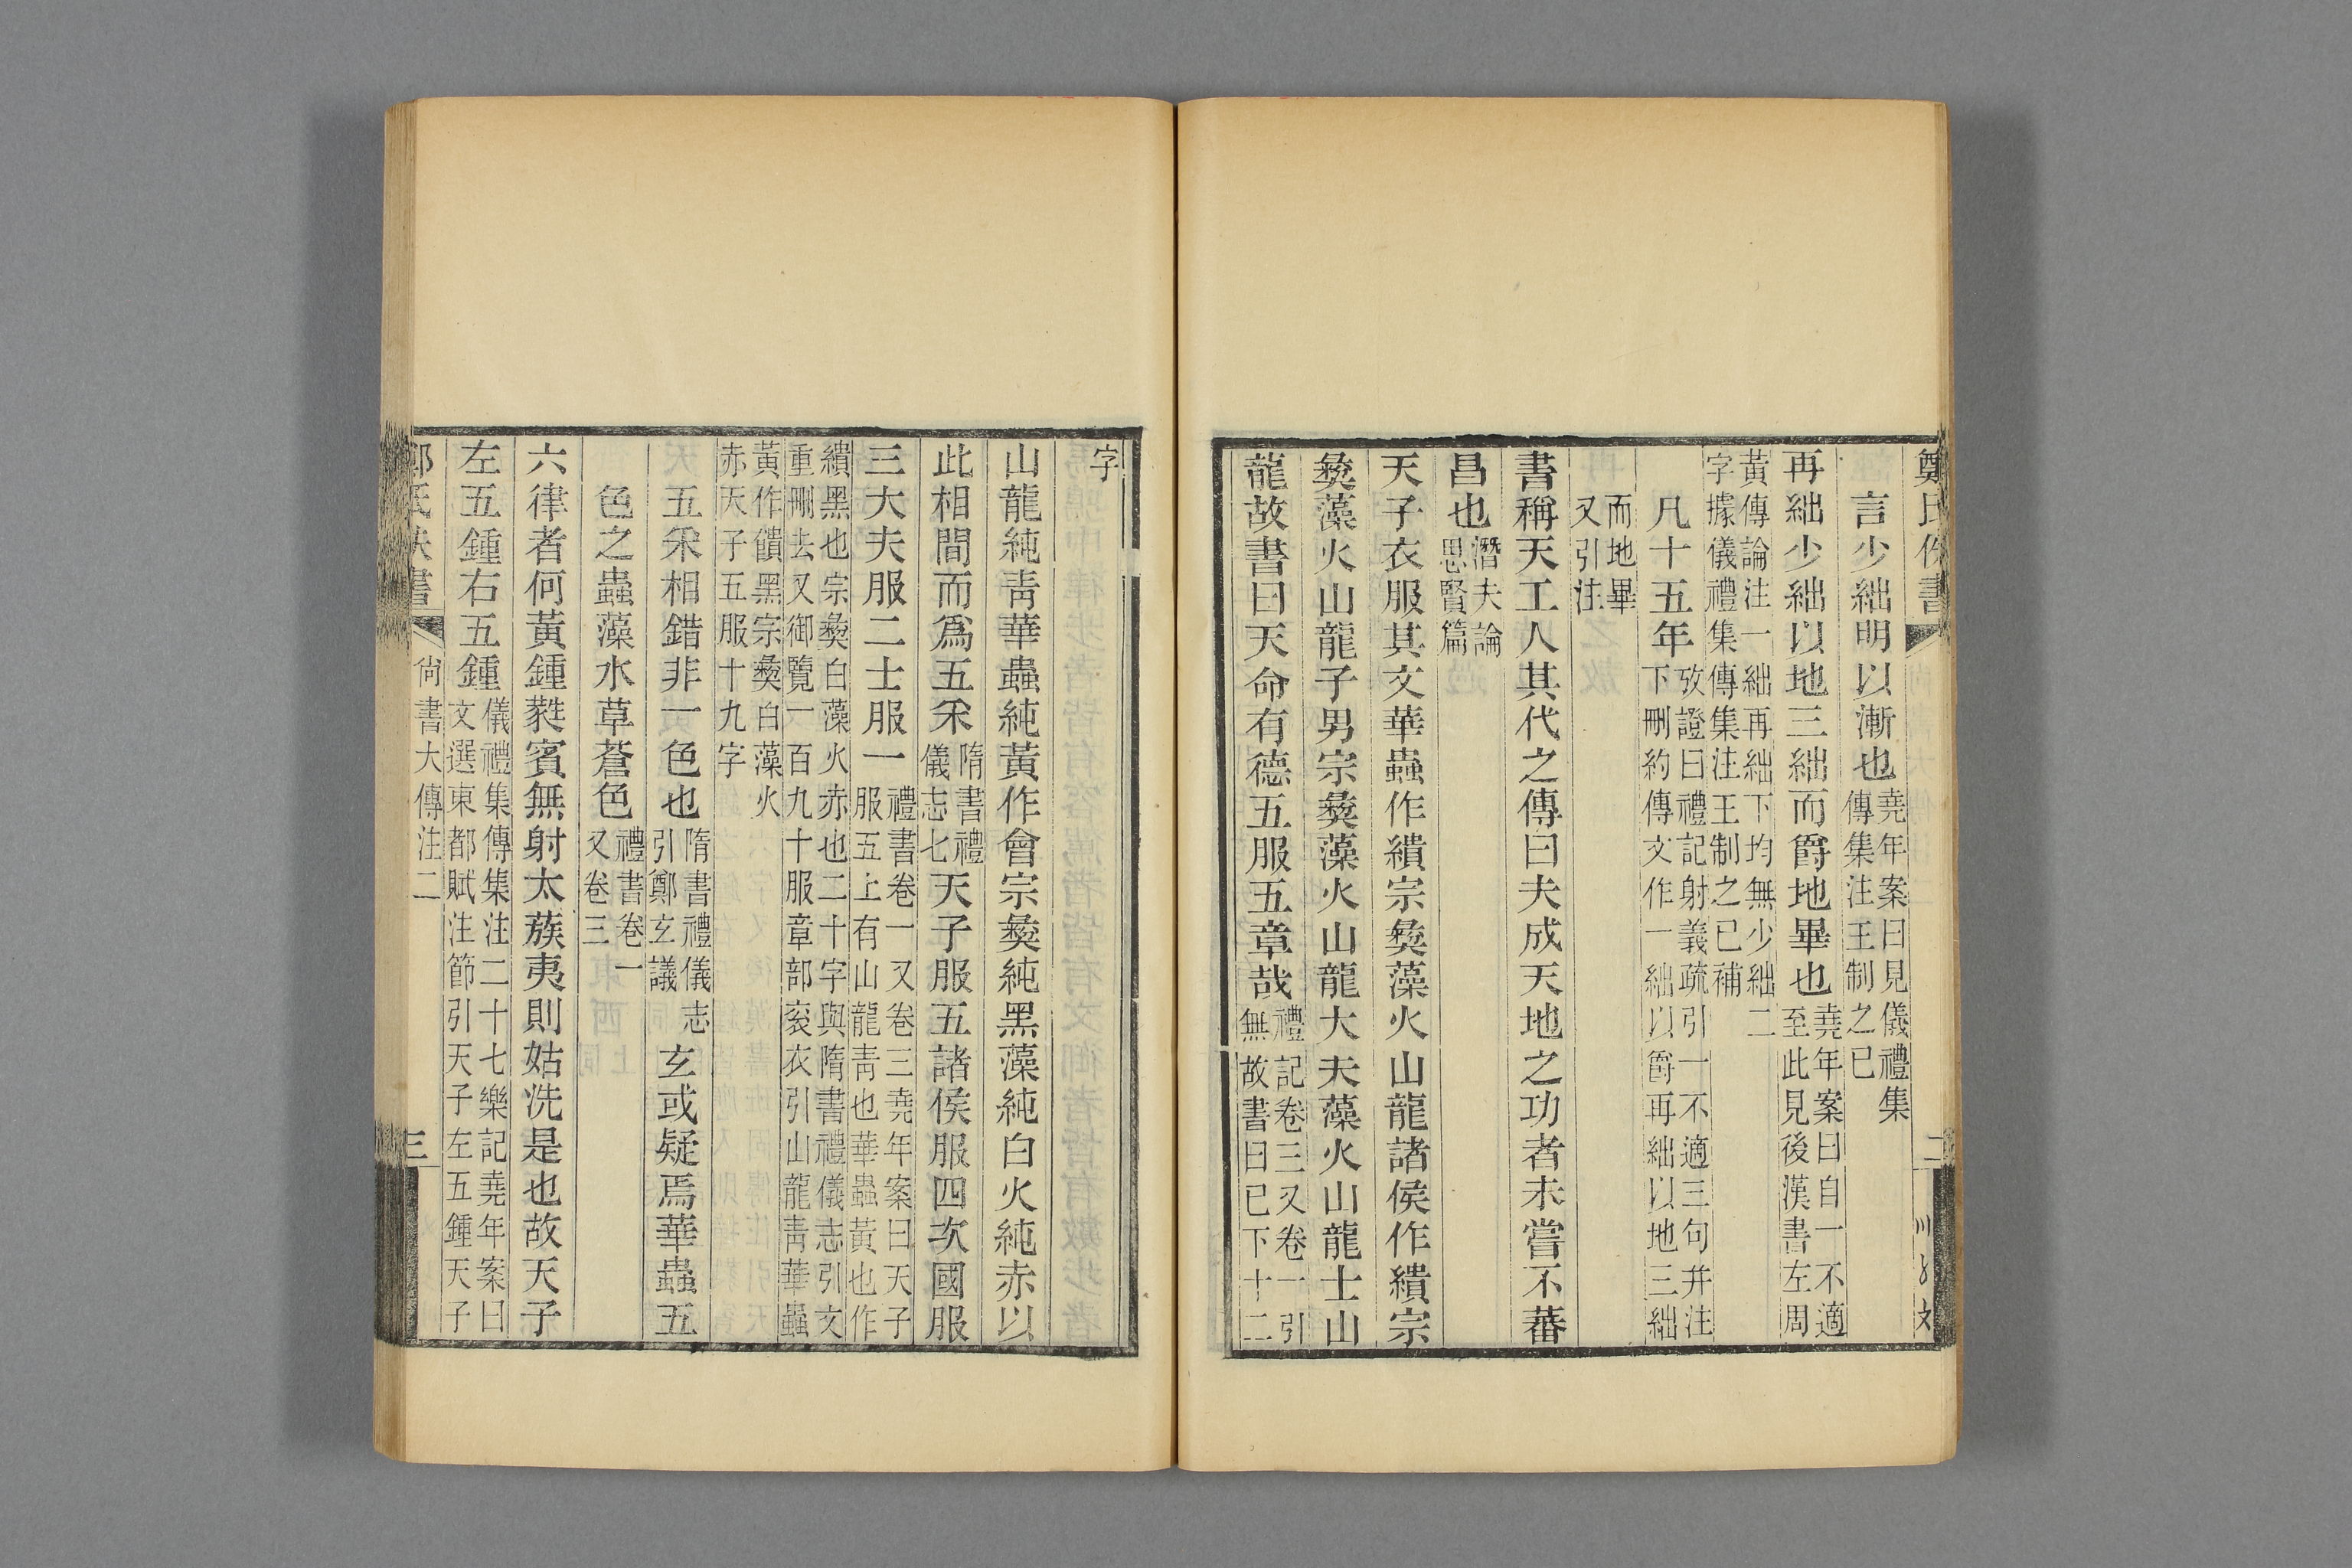 鄭氏佚書
二
言少絀明以漸也堯年案曰見儀禮集傳集注王制之已
再絀少絀以地三絀而爵地畢也堯年案曰自一不適至此見後漢書左周
黃傳論注一絀再絀下均無少絀二字據儀禮集傳集注王制之已補
凡十五年攷證曰禮記射義疏引一不適三句幷注下刪約傳文作一絀以爵再絀以地三絀
而地畢又引注
書稱天工人其代之傳曰夫成天地之功者未嘗不蕃
昌也潛夫論思賢篇
天子衣服其文華蟲作繢宗彝藻火山龍諸侯作繢宗
彝藻火山龍子男宗彝藻火山龍大夫藻火山龍士山
龍故書曰天命有德五服五章哉禮記卷三又卷一引無故書曰已下十二
字
山龍純靑華蟲純黃作會宗彝純黑藻純白火純赤以
此相間而爲五采隋書禮儀志七天子服五諸侯服四次國服
三大夫服二士服一禮書卷一又卷三堯年案曰天子服五上有山龍靑也華蟲黃也作
繢黑也宗彝白藻火赤也二十字與隋書禮儀志引文重刪去又御覽一百九十服章部衮衣引山龍靑華蟲
黃作饋黑宗彝白藻火赤天子五服十九字
五采相錯非一色也隋書禮儀志引鄭玄議玄或疑焉華蟲五
色之蟲藻水草蒼色禮書卷一又卷三
六律者何黃鍾蕤賓無射太蔟夷則姑洗是也故天子
左五鍾右五鍾儀禮集傳集注二十七樂記堯年案曰文選東都賦注節引天子左五鍾天子
鄭氏佚書
尙書大傳注二
三